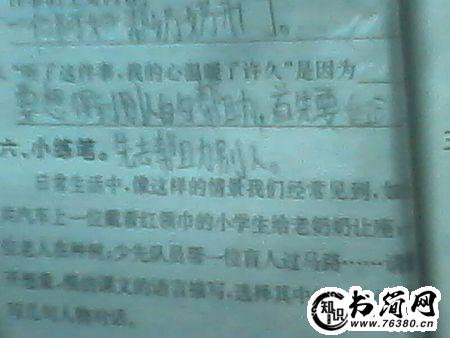 "听了这件事,我的心温暖了许久"是因为
要想得到别人的帮助,首先要
六、小练笔。先去帮助别人。
日常生活中,像这样的情景我们经常见到,如
在汽车上一位戴着红领巾的小学生给老奶奶让座
位老人在种树;少先队员帮一位盲人过马路……
课文的语言描写,选择其中
写几句人物对话。
知识
书简网
www.76380.cn